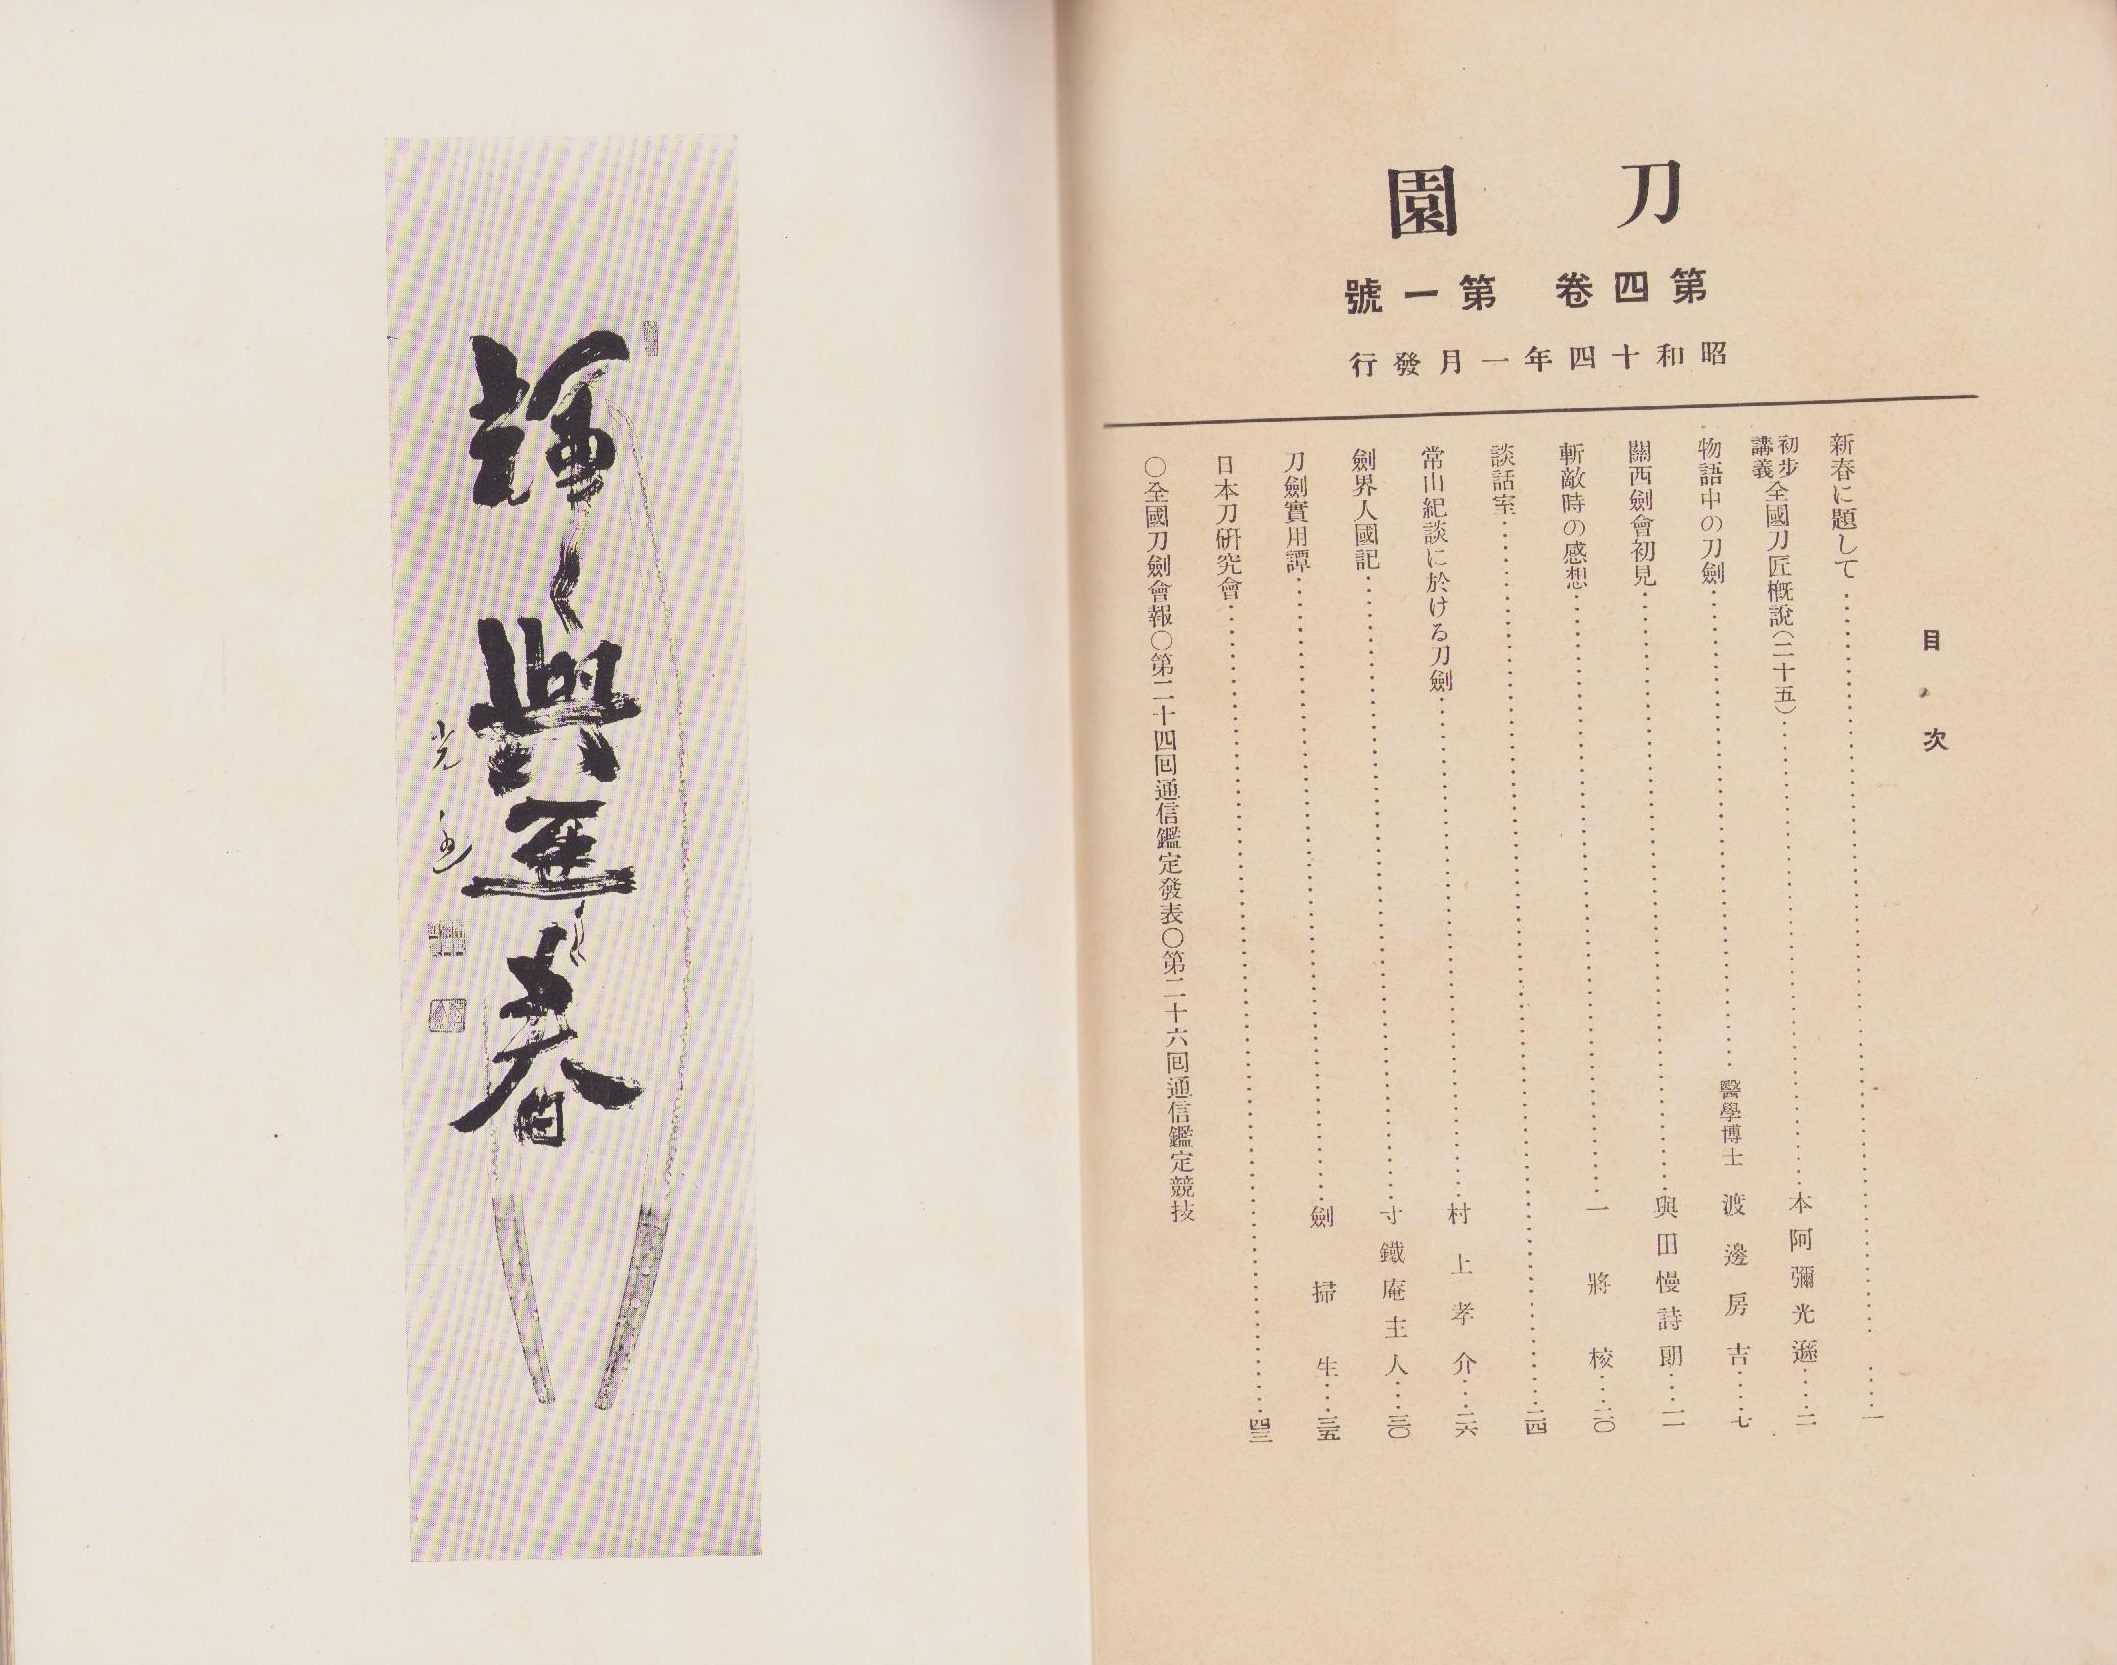 刀園
第四卷 第一號
昭和十四年一月發行
目次
新春に題して……一
初步講義 全國刀匠概說(二十五)……本阿彌光遜……二
物語中の刀劍……醫學博士 渡邊房吉……七
關西劍會初見……與田慢詩朗……一一
斬敵時の感想……一將校……二〇
談話室……二四
常山紀談に於ける刀劍……村上孝介……二六
劍界人國記……寸鐵庵主人……三〇
刀劍實用譚……劍掃生……三五
日本刀硏究會……四三
〇全國刀劍會報〇第二十四回通信鑑定發表〇第二十六回通信鑑定競技
輝く興亞の春
光遜